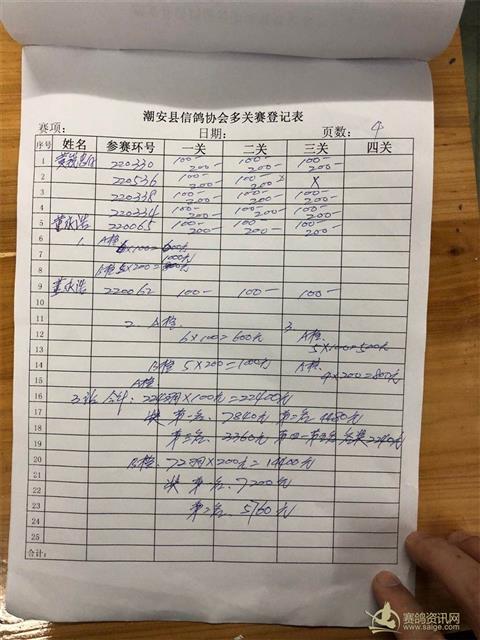 潮安县信鸽协会多关赛登记表
赛项: 日期: 页数: 4
序号 姓名 参赛环号 一关 二关 三关 四关
1 220330 100- 200- 100- 200- 100- 200-
2 220536 100- 200- 100- 200- x X
3 220338 100- 200- 100- 200- 100- 200-
4 220334 100- 200- 100- 200- 100- 200-
5 220065 100- 200- 100- 200- 100- 200-
6 1. A检 6x100=600元
7 1000元
8 B检 5x200=
9 220062 100- 100- 100-
10
11 2. A检. 3.
12 6x100=600元 A检.
13 5x100=500元
14 B检 5x200=1000元 A检.
15 A检 4x200=800元
16 3 合计: 224羽x100元=22400元
17 奖 第一名: 7840元 第二名 4480元
18
19 第三名: 3360元 第四-第五名 各奖2240元
20 B检: 72羽x200元=14400元
21
22 奖 第一名: 7200元
23 第二名. 5760元
24
25
合计:
赛鸽资讯网
www.saige.com